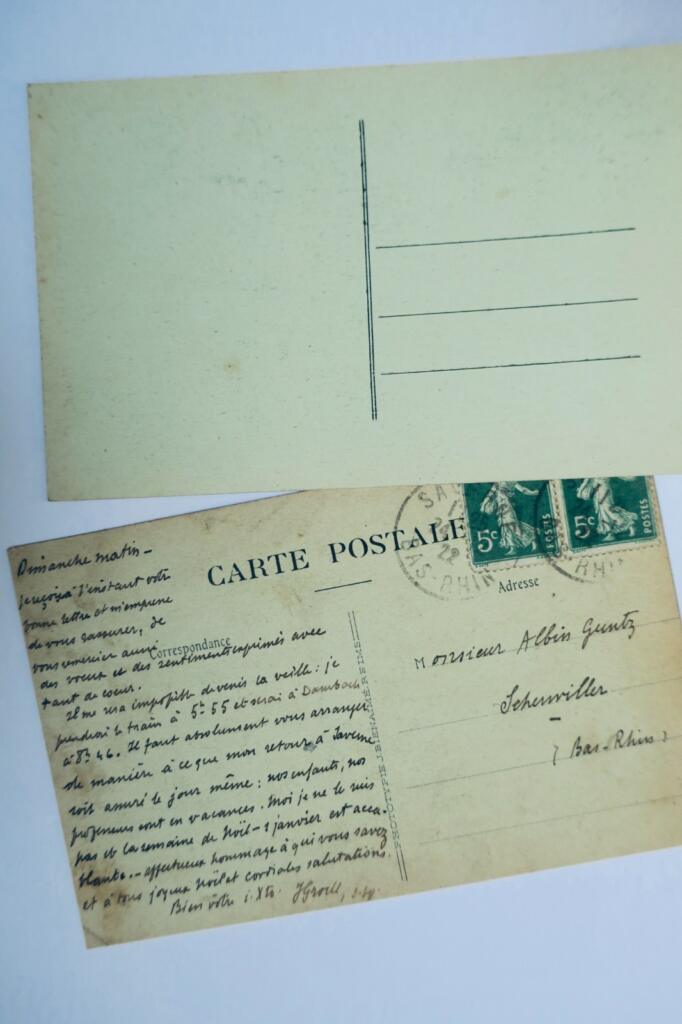 CARTE POSTALE
Correspondance
Adresse
5c POSTES
5c POSTES
BAS-RHIN
22
Dimanche matin —
Je reçois à l'instant votre
bonne lettre et m'empresse
de vous rassurer, de
vous remercier aussi
des vœux et des sentiments exprimés avec
tant de cœur.
Il me sera impossible de venir la veille : je
prendrai le train à 5h 55 et serai à Dambach
à 8h 46. Il faut absolument vous arranger
de manière à ce que mon retour à Saverne
soit assuré le jour même : nos enfants, nos
professeurs sont en vacances. Moi je ne le suis
pas et la semaine de Noël - 1 janvier est acca-
blante. — affectueux hommage à qui vous savez
et à tous joyeux Noël et cordiales salutations.
Bien vôtre i. Xto.
PHOTOTYPIE J. BIENAIMÉ REIMS
Monsieur Albin Guntz
Scherwiller
(Bas-Rhin)